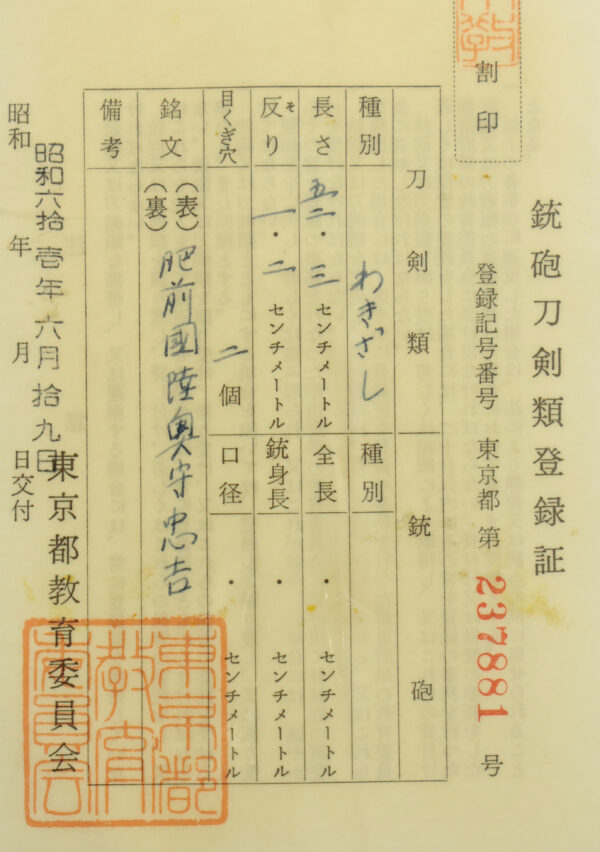 割印
銃砲刀剣類登録証
登録記号番号 東京都 第 237881 号
刀剣類 銃砲
種別 わきざし 種別
長さ 五二・三 センチメートル 全長 ・ センチメートル
反り そ 一・二 センチメートル 銃身長 ・ センチメートル
目くぎ穴 二 個 口径 ・ センチメートル
銘文 (表) 肥前國陸奥守忠吉
(裏)
備考
昭和 年 月 日交付
昭和六拾壱年六月拾九日
東京都教育委員会
東京都
教育
委員会